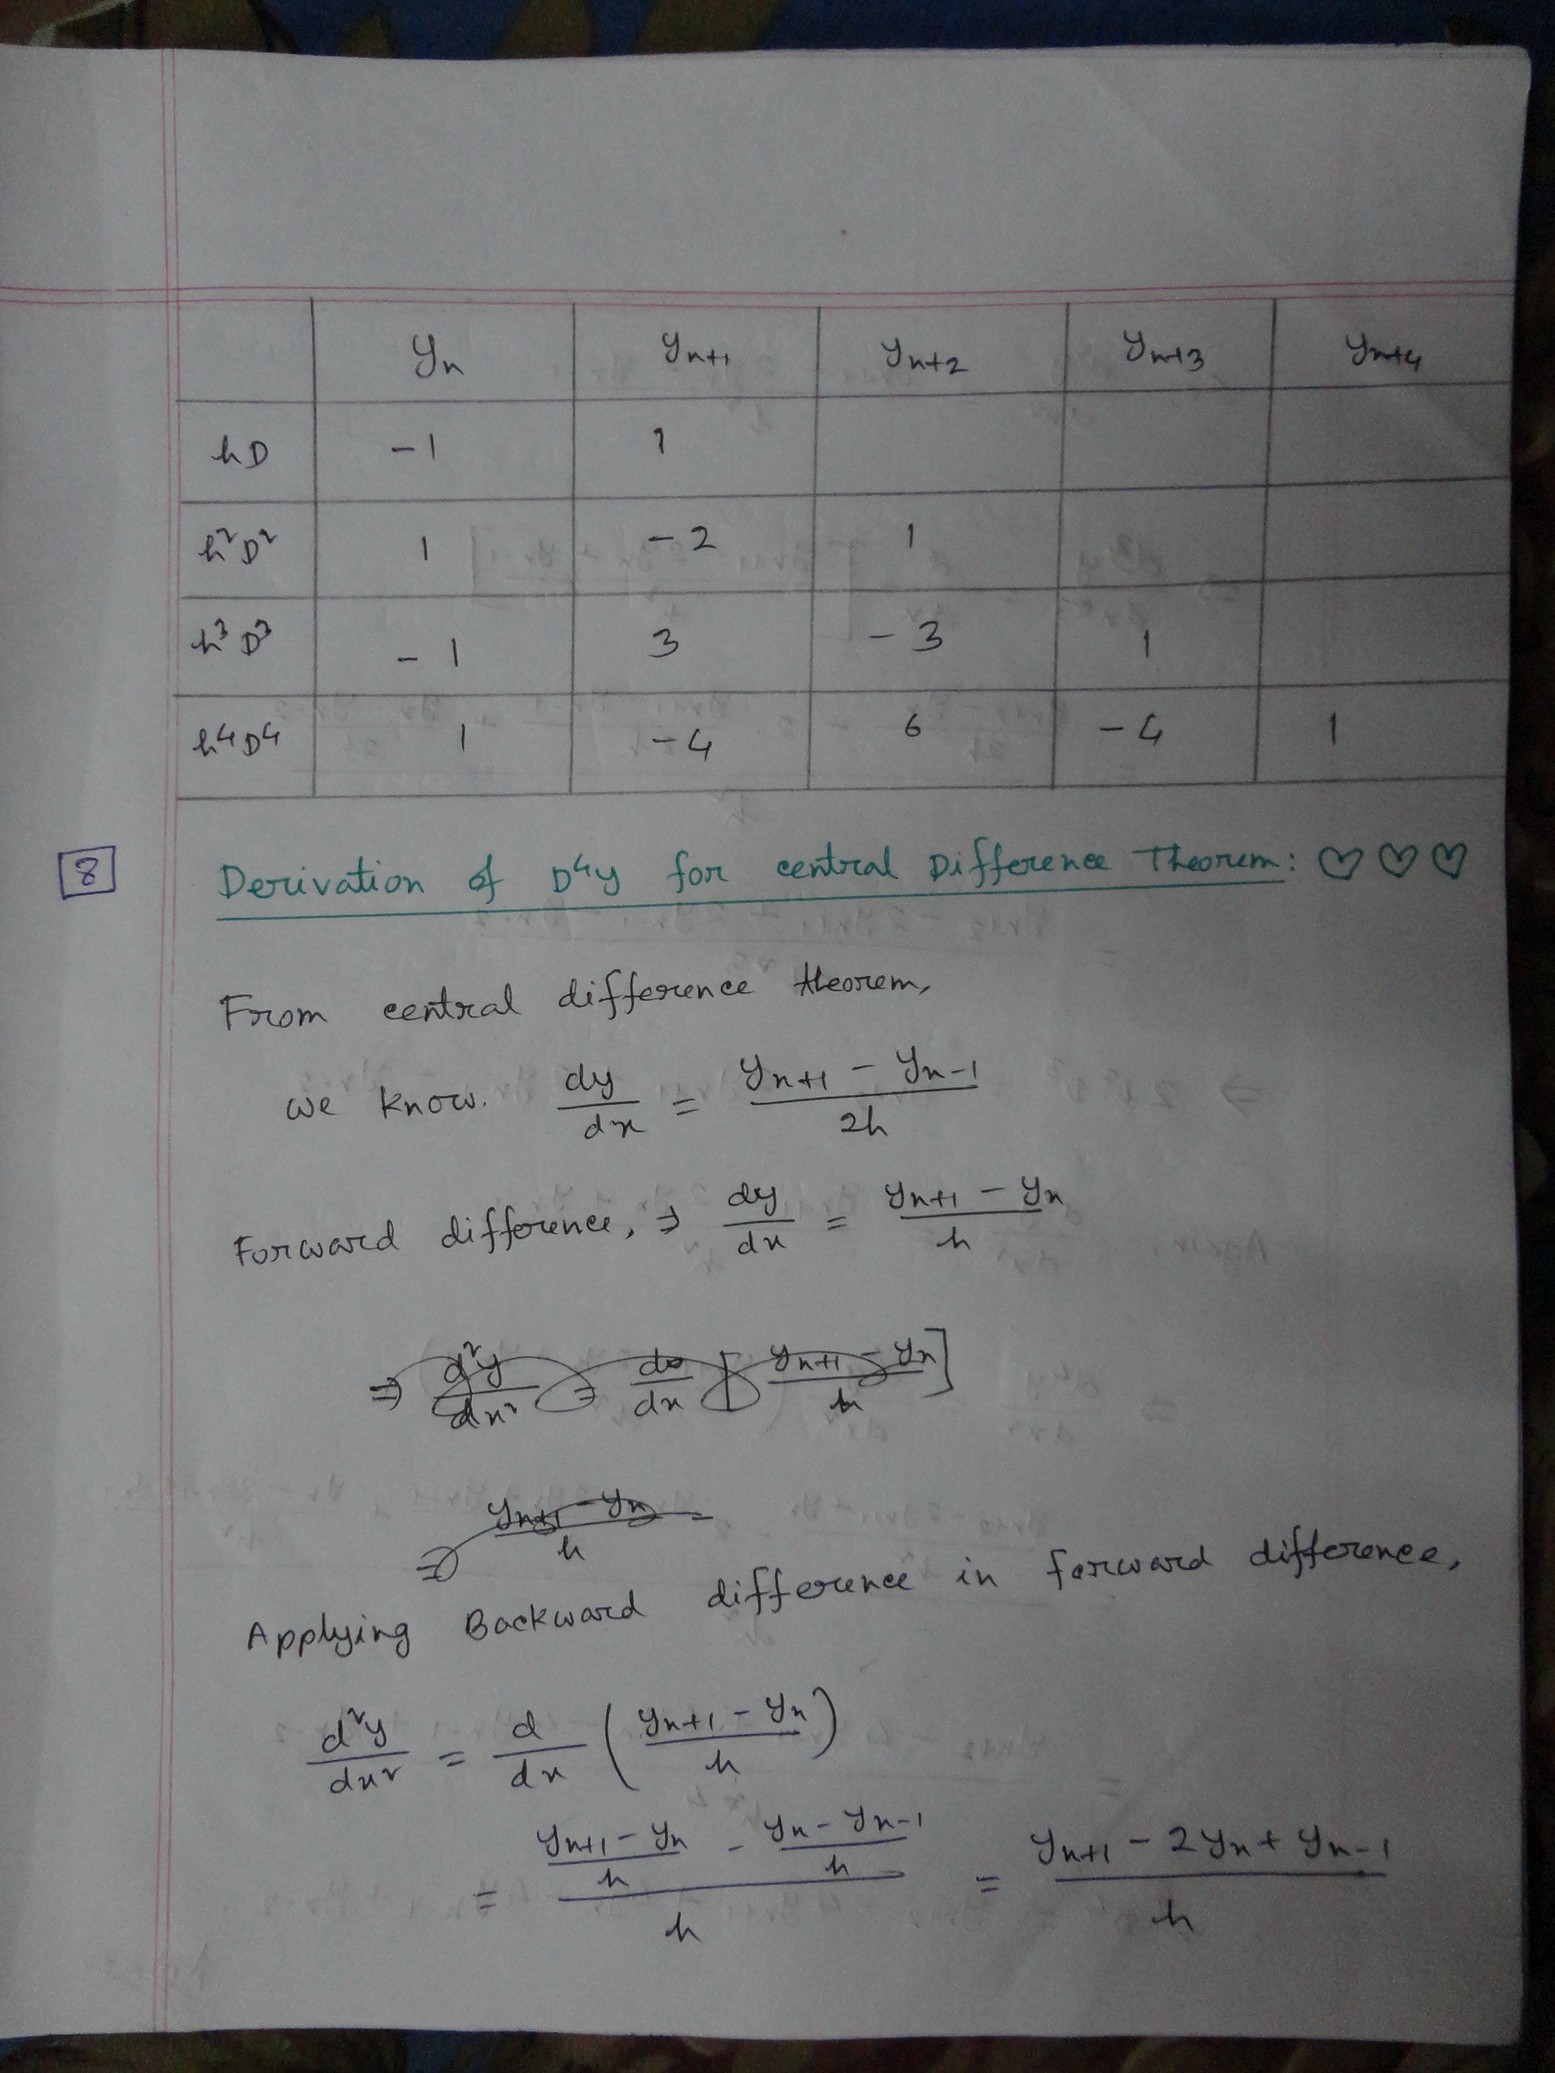 yn yn+1 yn+2 yn+3 yn+4
hD -1 1
h²D² 1 -2 1
h³D³ -1 3 -3 1
h⁴D⁴ 1 -4 6 -4 1
8 Derivation of D⁴y for central Difference Theorem: ♡ ♡ ♡
From central difference theorem,
we know. dy/dx = (yn+1 - yn-1)/2h
Forward difference, ⇒ dy/dx = (yn+1 - yn)/h
⇒ d²y/dx² = d/dx [(yn+1 - yn)/h]
⇒ (yn+1 - yn)/h =
Applying Backward difference in forward difference,
d²y/dx² = d/dx ((yn+1 - yn)/h)
= ((yn+1 - yn)/h - (yn - yn-1)/h)/h = (yn+1 - 2yn + yn-1)/h